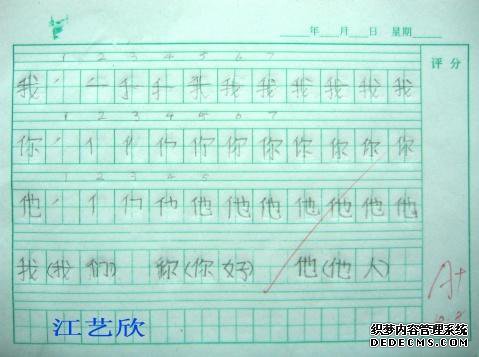 年 月 日 星期
评分
1 2 3 4 5 6 7
我 我 我 我 我 我 我
1 2 3 4 5 6 7
你 亻 你 你 你 你 你
1 2 3 4 5
他 亻 他 他 他 他 他 他 他
我(我们) 你(你好) 他(他人)
A+
江艺欣
织梦内容管理系统
DEDECMS.COM